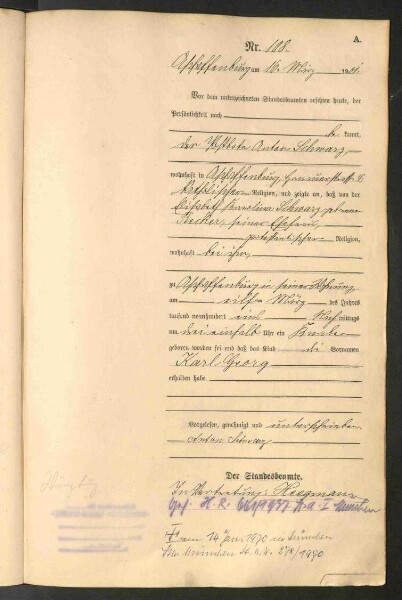 A.
Nr. 108.
Aschaffenburg am 16. März 1901.
Vor dem unterzeichneten Standesbeamten erschien heute, der
Persönlichkeit nach
be kannt,
der Postbote Anton Schwarz,
wohnhaft in Aschaffenburg,
katholischer Religion, und zeigte an, daß von der
Elisabeth Karolina Schwarz geborene
Becker, seiner Ehefrau,
protestantischer Religion,
wohnhaft bei ihm,
zu Aschaffenburg in seiner Wohnung
am elften März des Jahres
tausend neunhundert eins Nach mittags
um drei einhalb Uhr ein Knabe
geboren worden sei und daß das Kind die Vornamen
Karl Georg
erhalten habe.
Vorgelesen, genehmigt und unterschrieben
Anton Schwarz
Der Standesbeamte.
In Vertretung: Hesgmann
am 14. Jan. 1970 in München